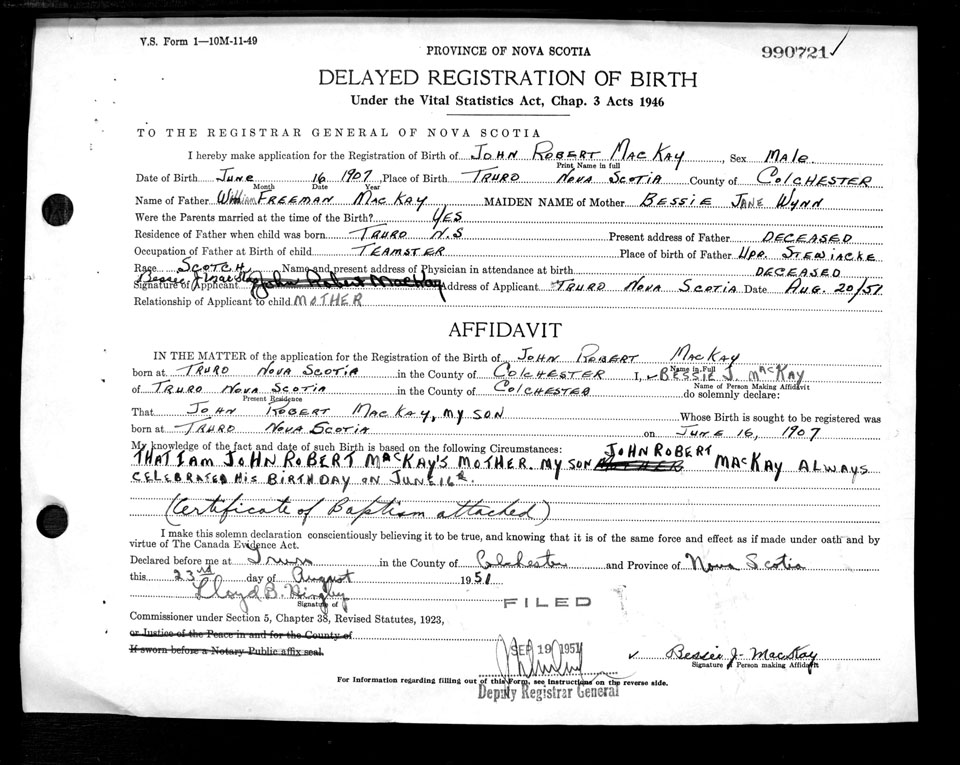 V.S. Form 1—10M-11-49
PROVINCE OF NOVA SCOTIA
990721 ✓
DELAYED REGISTRATION OF BIRTH
Under the Vital Statistics Act, Chap. 3 Acts 1946
TO THE REGISTRAR GENERAL OF NOVA SCOTIA
I hereby make application for the Registration of Birth of JOHN ROBERT MACKAY, Sex MALE
Print Name in full
Date of Birth JUNE 16 1907, Place of Birth TRURO NOVA SCOTIA County of COLCHESTER
Month Date Year
Name of Father William FREEMAN MACKAY MAIDEN NAME of Mother BESSIE JANE WYNN
Were the Parents married at the time of the Birth? YES
Residence of Father when child was born TRURO N.S Present address of Father DECEASED
Occupation of Father at Birth of child TEAMSTER Place of birth of Father UPP. STEWIACKE
Race SCOTCH Name and present address of Physician in attendance at birth DECEASED
Bessie J MacKay
Signature of Applicant John Robert MacKay Address of Applicant TRURO NOVA SCOTIA Date AUG. 20/51
Relationship of Applicant to child MOTHER
AFFIDAVIT
IN THE MATTER of the application for the Registration of the Birth of JOHN ROBERT MACKAY
Name in Full
born at TRURO NOVA SCOTIA in the County of COLCHESTER I, BESSIE J. MACKAY
Name of Person Making Affidavit
of TRURO NOVA SCOTIA in the County of COLCHESTER do solemnly declare:
Present Residence
That JOHN ROBERT MACKAY, MY SON Whose Birth is sought to be registered was
born at TRURO NOVA SCOTIA on JUNE 16, 1907
My knowledge of the fact and date of such Birth is based on the following Circumstances:
THAT I AM JOHN ROBERT MACKAY'S MOTHER. MY SON JOHN ROBERT MACKAY ALWAYS
CELEBRATED HIS BIRTHDAY ON JUNE 16th.
(Certificate of Baptism attached)
I make this solemn declaration conscientiously believing it to be true, and knowing that it is of the same force and effect as if made under oath and by
virtue of The Canada Evidence Act.
Declared before me at Truro in the County of Colchester and Province of Nova Scotia
this 23rd day of August 1951
Lloyd B.
Signature of
FILED
Commissioner under Section 5, Chapter 38, Revised Statutes, 1923,
or Justice of the Peace in and for the County of
If sworn before a Notary Public affix seal.
SEP 19 1951
✓ Bessie J. MacKay
Signature of Person making Affidavit
For Information regarding filling out of this Form, see instructions on the reverse side.
Deputy Registrar General